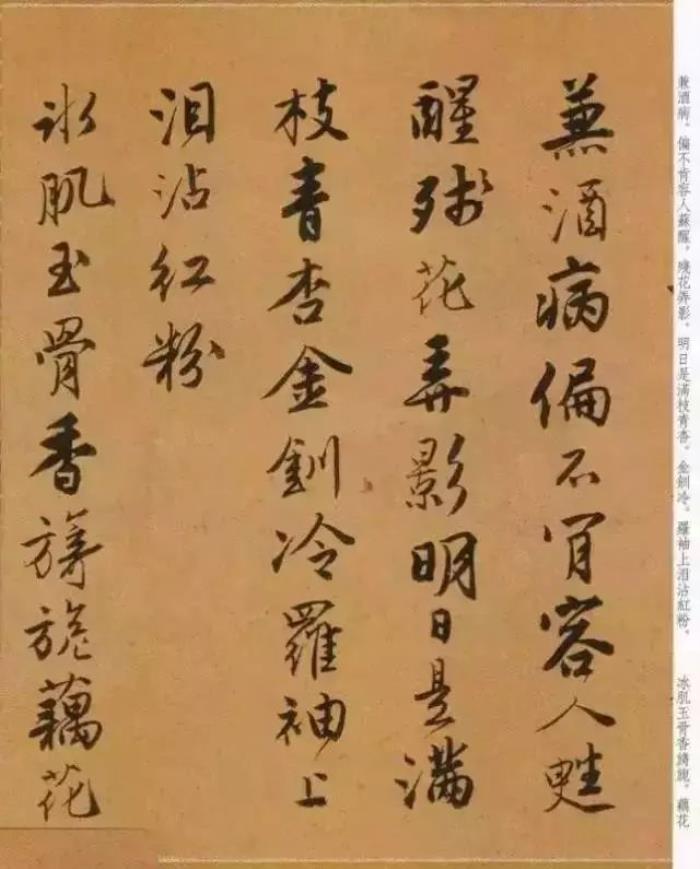 兼酒病偏不肯容人甦
醒残花弄影明日是满
枝青杏金釧冷羅袖上
泪沾红粉
冰肌玉骨香旖旎藕花
兼酒病，偏不肯容人蘇醒。殘花弄影，明日是滿枝青杏。金釧冷，羅袖上泪沾紅粉。
冰肌玉骨香旖旎。藕花